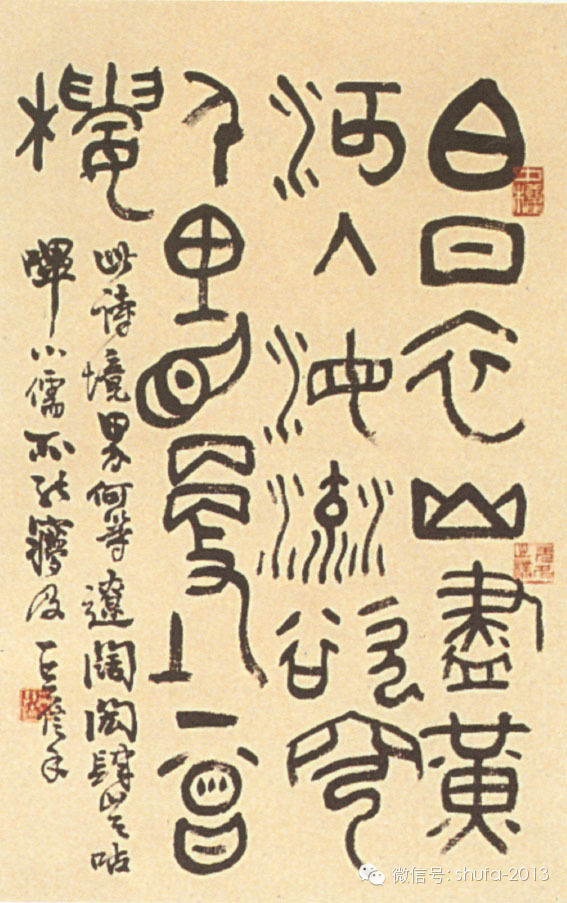 白日衣山盡黃
河入海流欲窮
千里目更上一曾
樓
此詩境界何等遼闊閎肆豈呫
嗶小儒所能及
微信号: shufa-2013